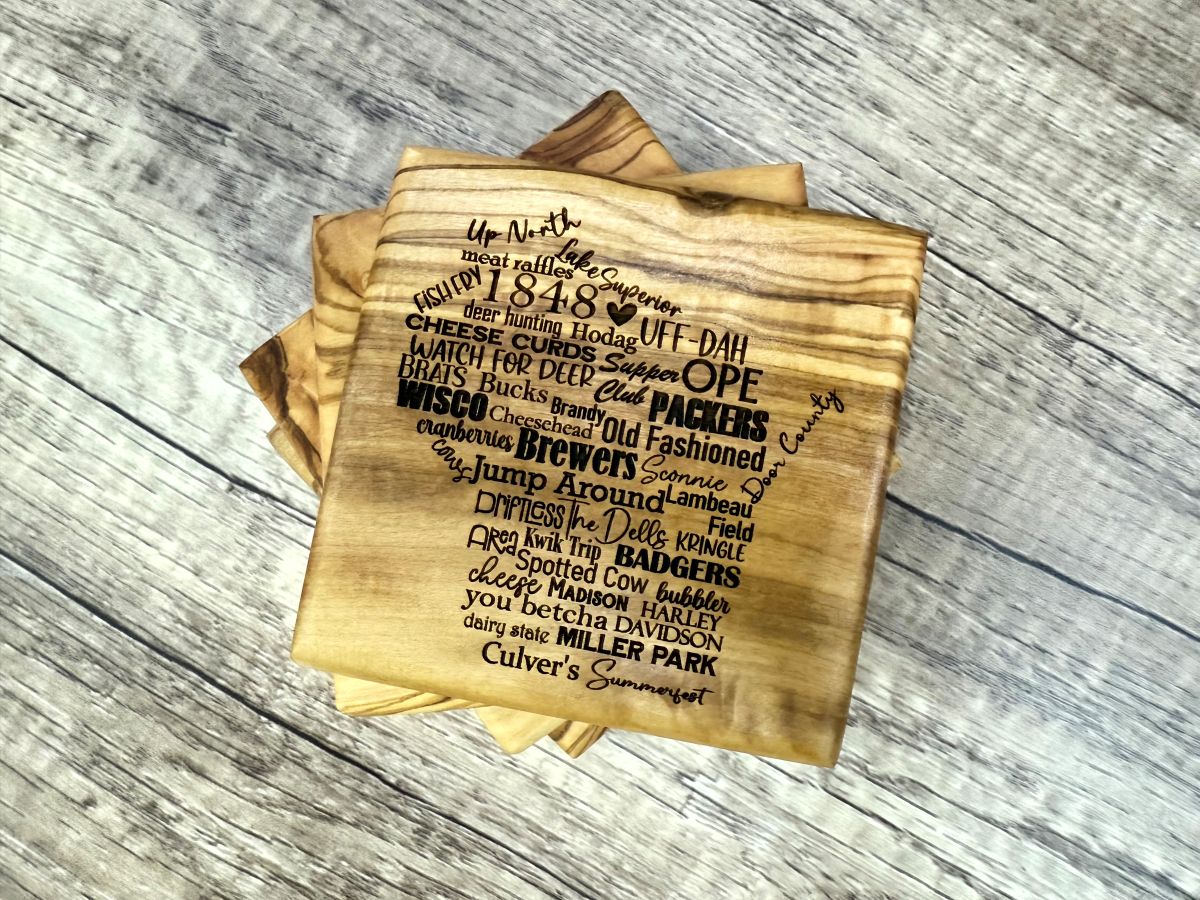 Up North
meat raffles Lake Superior
FISH FRY 1848
deer hunting Hodag UFF-DAH
CHEESE CURDS Supper Club OPE
WATCH FOR DEER
BRATS Bucks Brandy PACKERS
WISCO Cheesehead Old Fashioned Door County
cranberries Brewers Sconnie
cows Jump Around Lambeau Field
Driftless Area The Dells KRINGLE
Kwik Trip BADGERS
Spotted Cow bubbler
cheese MADISON HARLEY DAVIDSON
you betcha
dairy state MILLER PARK
Culver's Summerfest